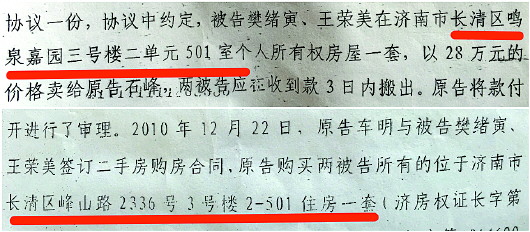 协议一份，协议中约定，被告樊绪寅、王荣美在济南市长清区鸣
泉嘉园三号楼二单元 501 室个人所有权房屋一套，以 28 万元的
价格卖给原告石峰，两被告应在收到款 3 日内搬出。原告将款付
开进行了审理。2010 年 12 月 22 日，原告车明与被告樊绪寅、
王荣美签订二手房购房合同，原告购买两被告所有的位于济南市
长清区峰山路 2336 号 3 号楼 2-501 住房一套（济房权证长字第